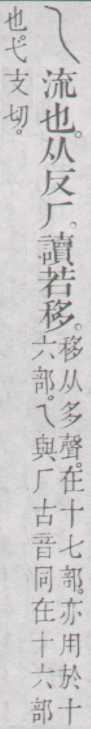 乁 流也。从反厂。讀若移。
移从多聲。在十七部。亦用於十
六部。乁與厂古音同在十六部
也。弋支切。